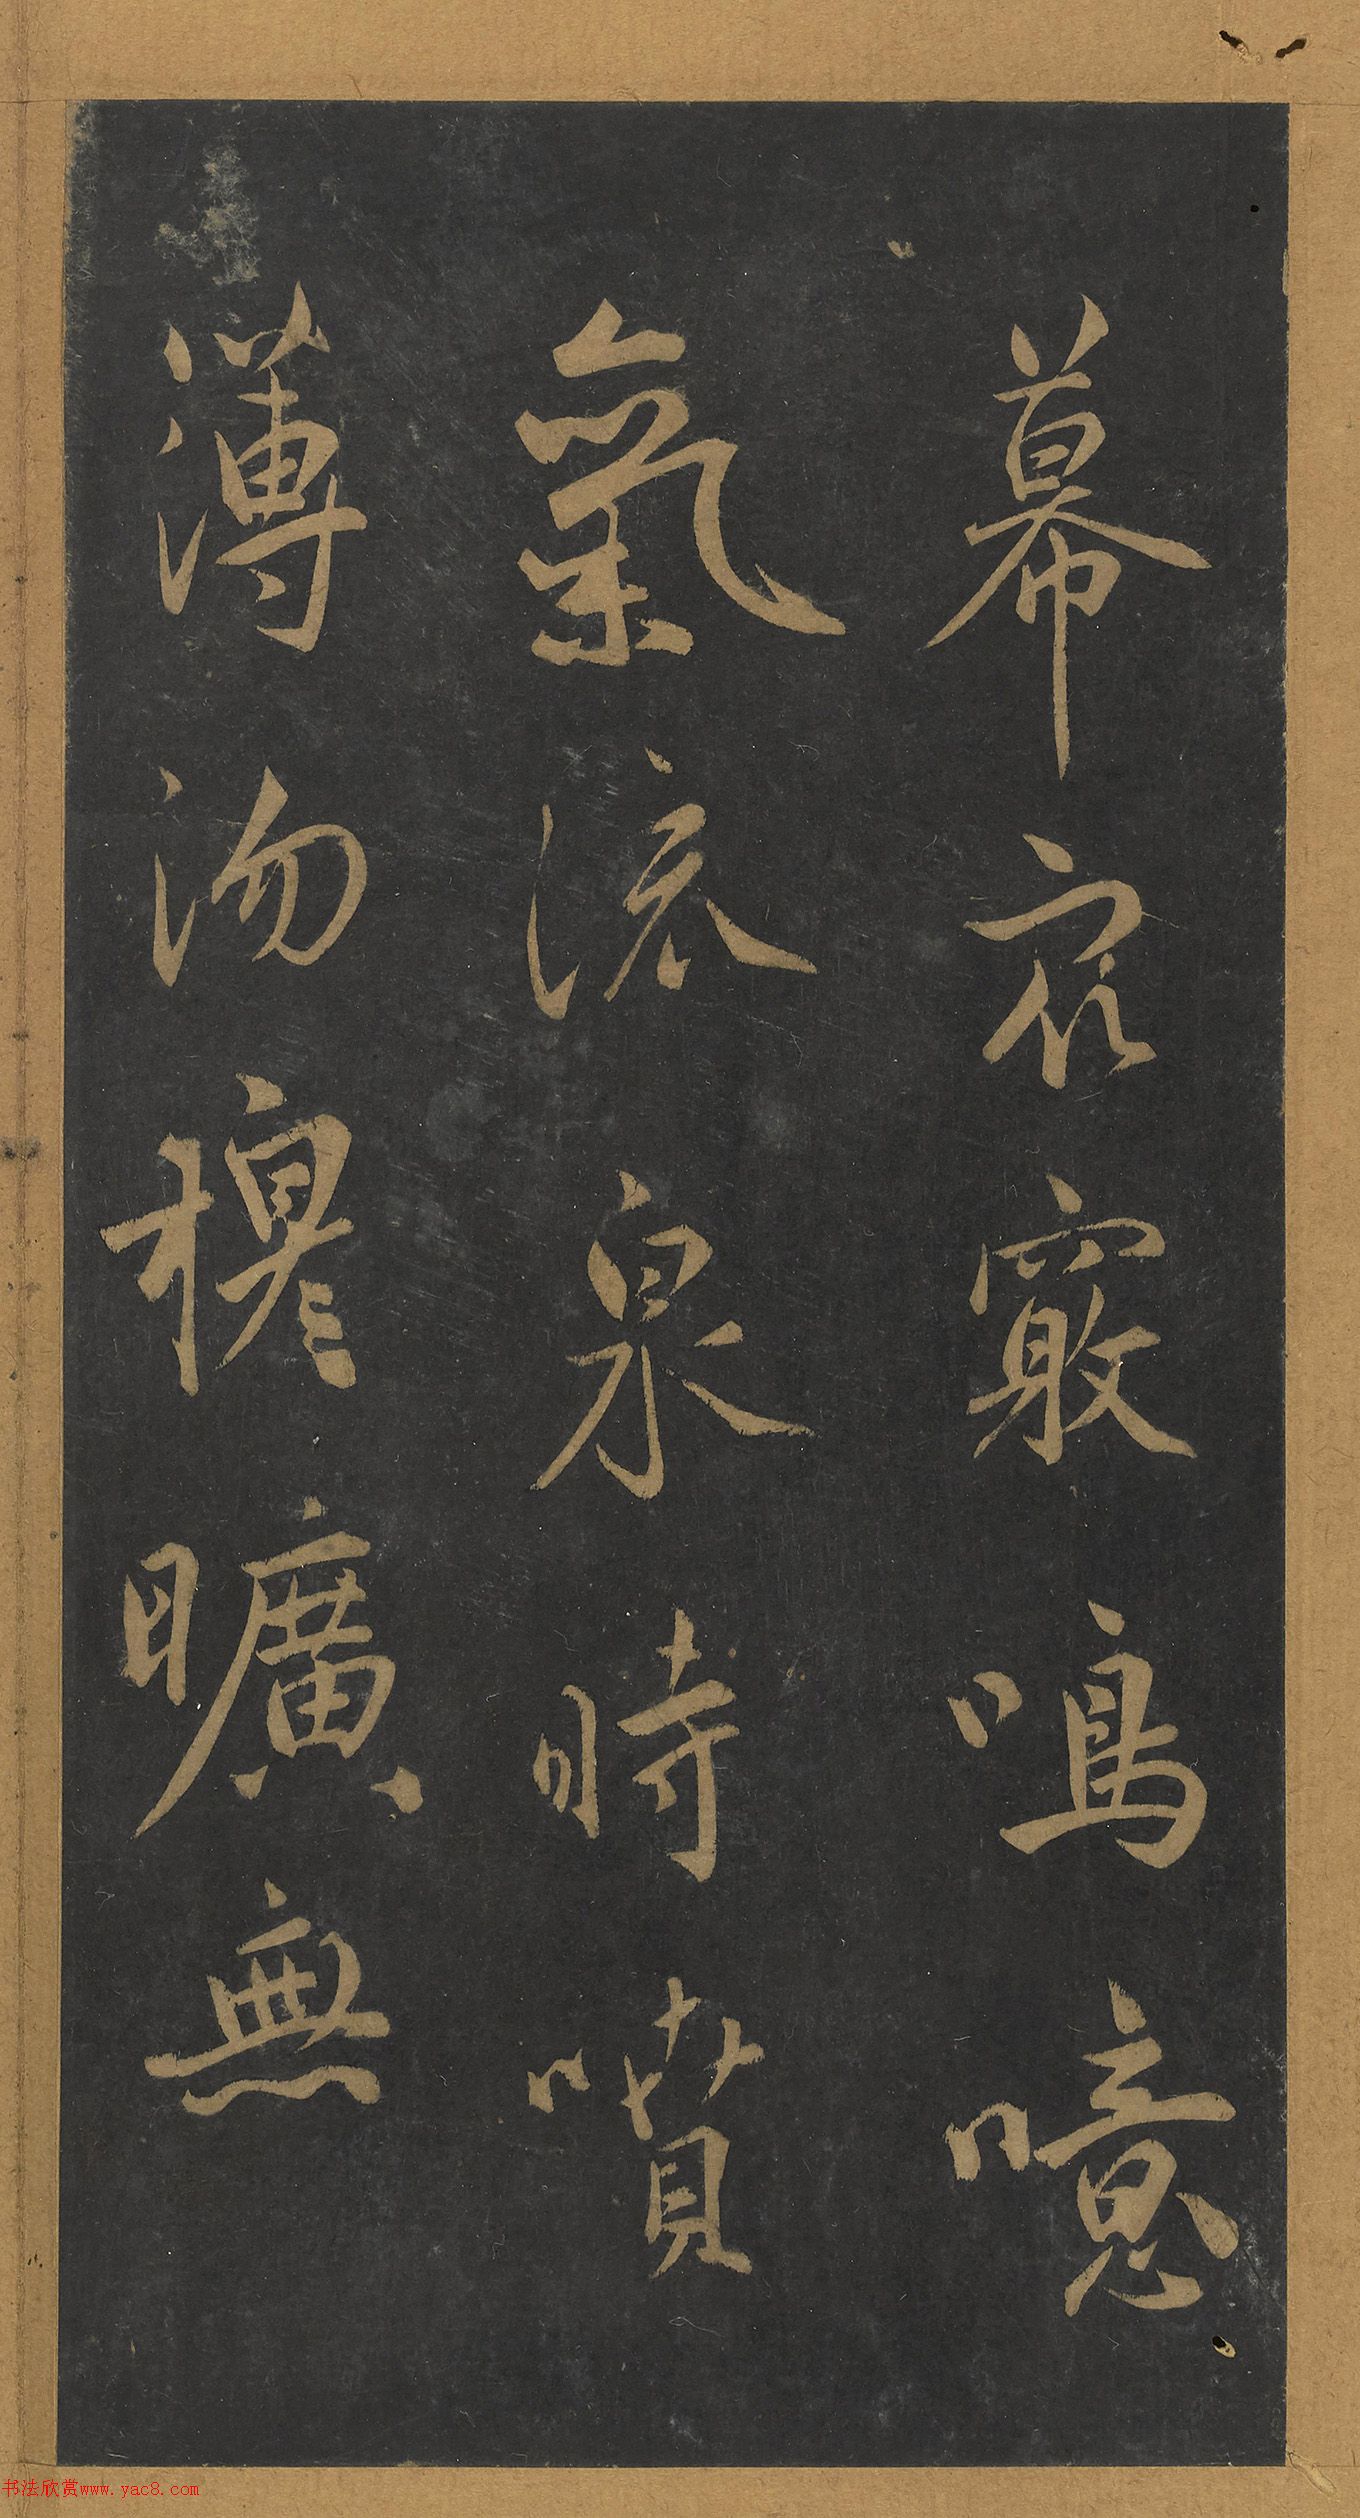 幕衆竅鳴噫
氣流泉時噴
薄沕穆曠無
书法欣赏www.yac8.com